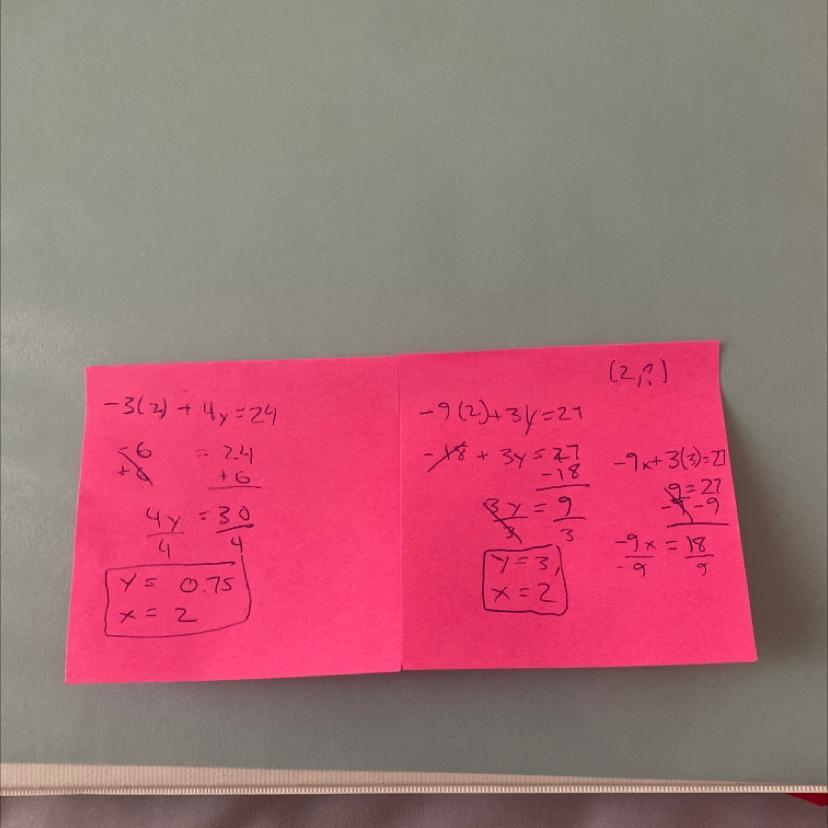 -3(2) + 4y = 24
-6 = 24
+6 +6
4y = 30
4 4
y = 0.75
x = 2
(2,?)
-9(2)+3y=27
-18 + 3y = 27
-18
3y = 9
3 3
y = 3,
x = 2
-9x+3(3)=27
9 = 27
-9 -9
-9x = 18
-9 9